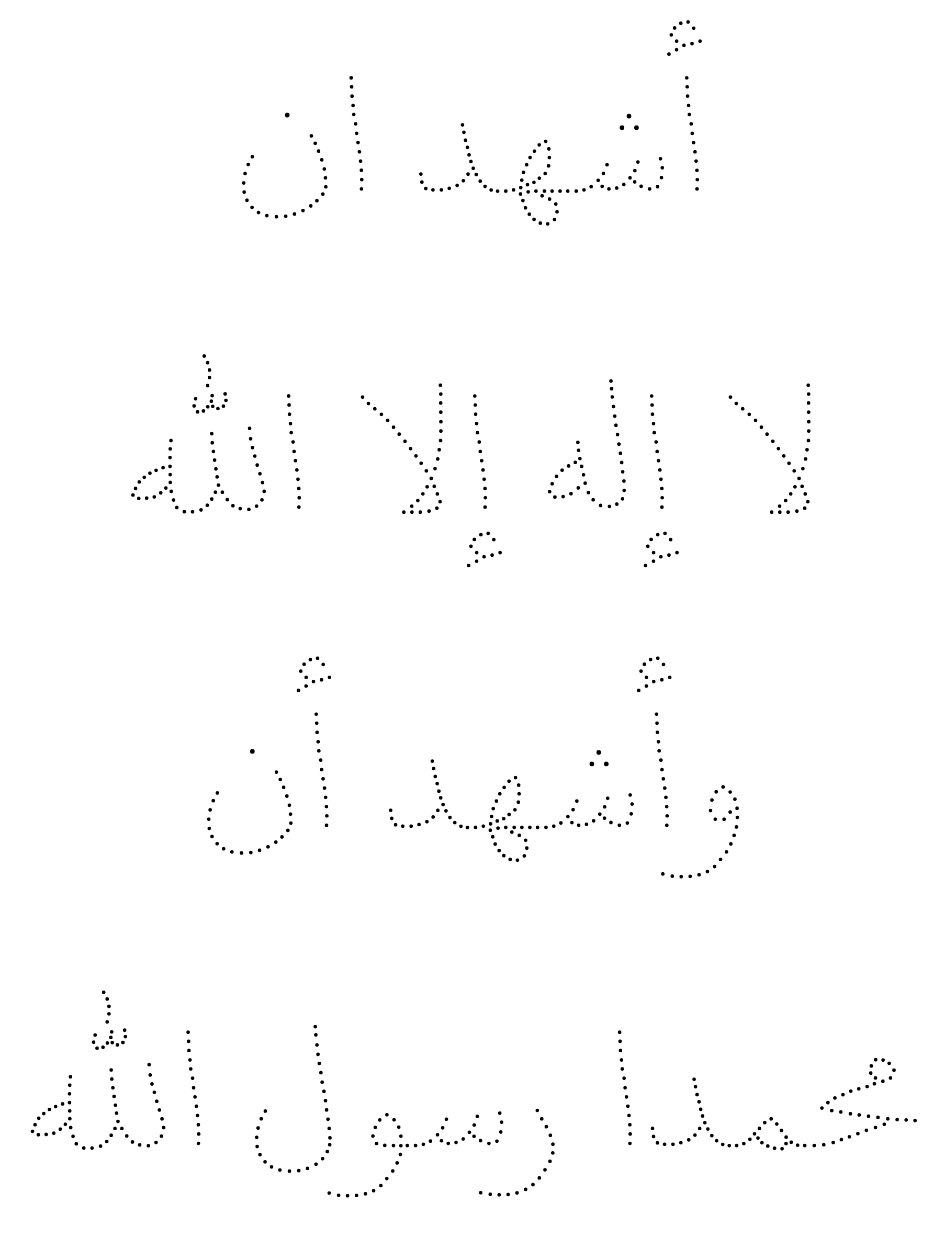 أشهد ان
لا إله إلا الله
وأشهد أن
محمدا رسول الله